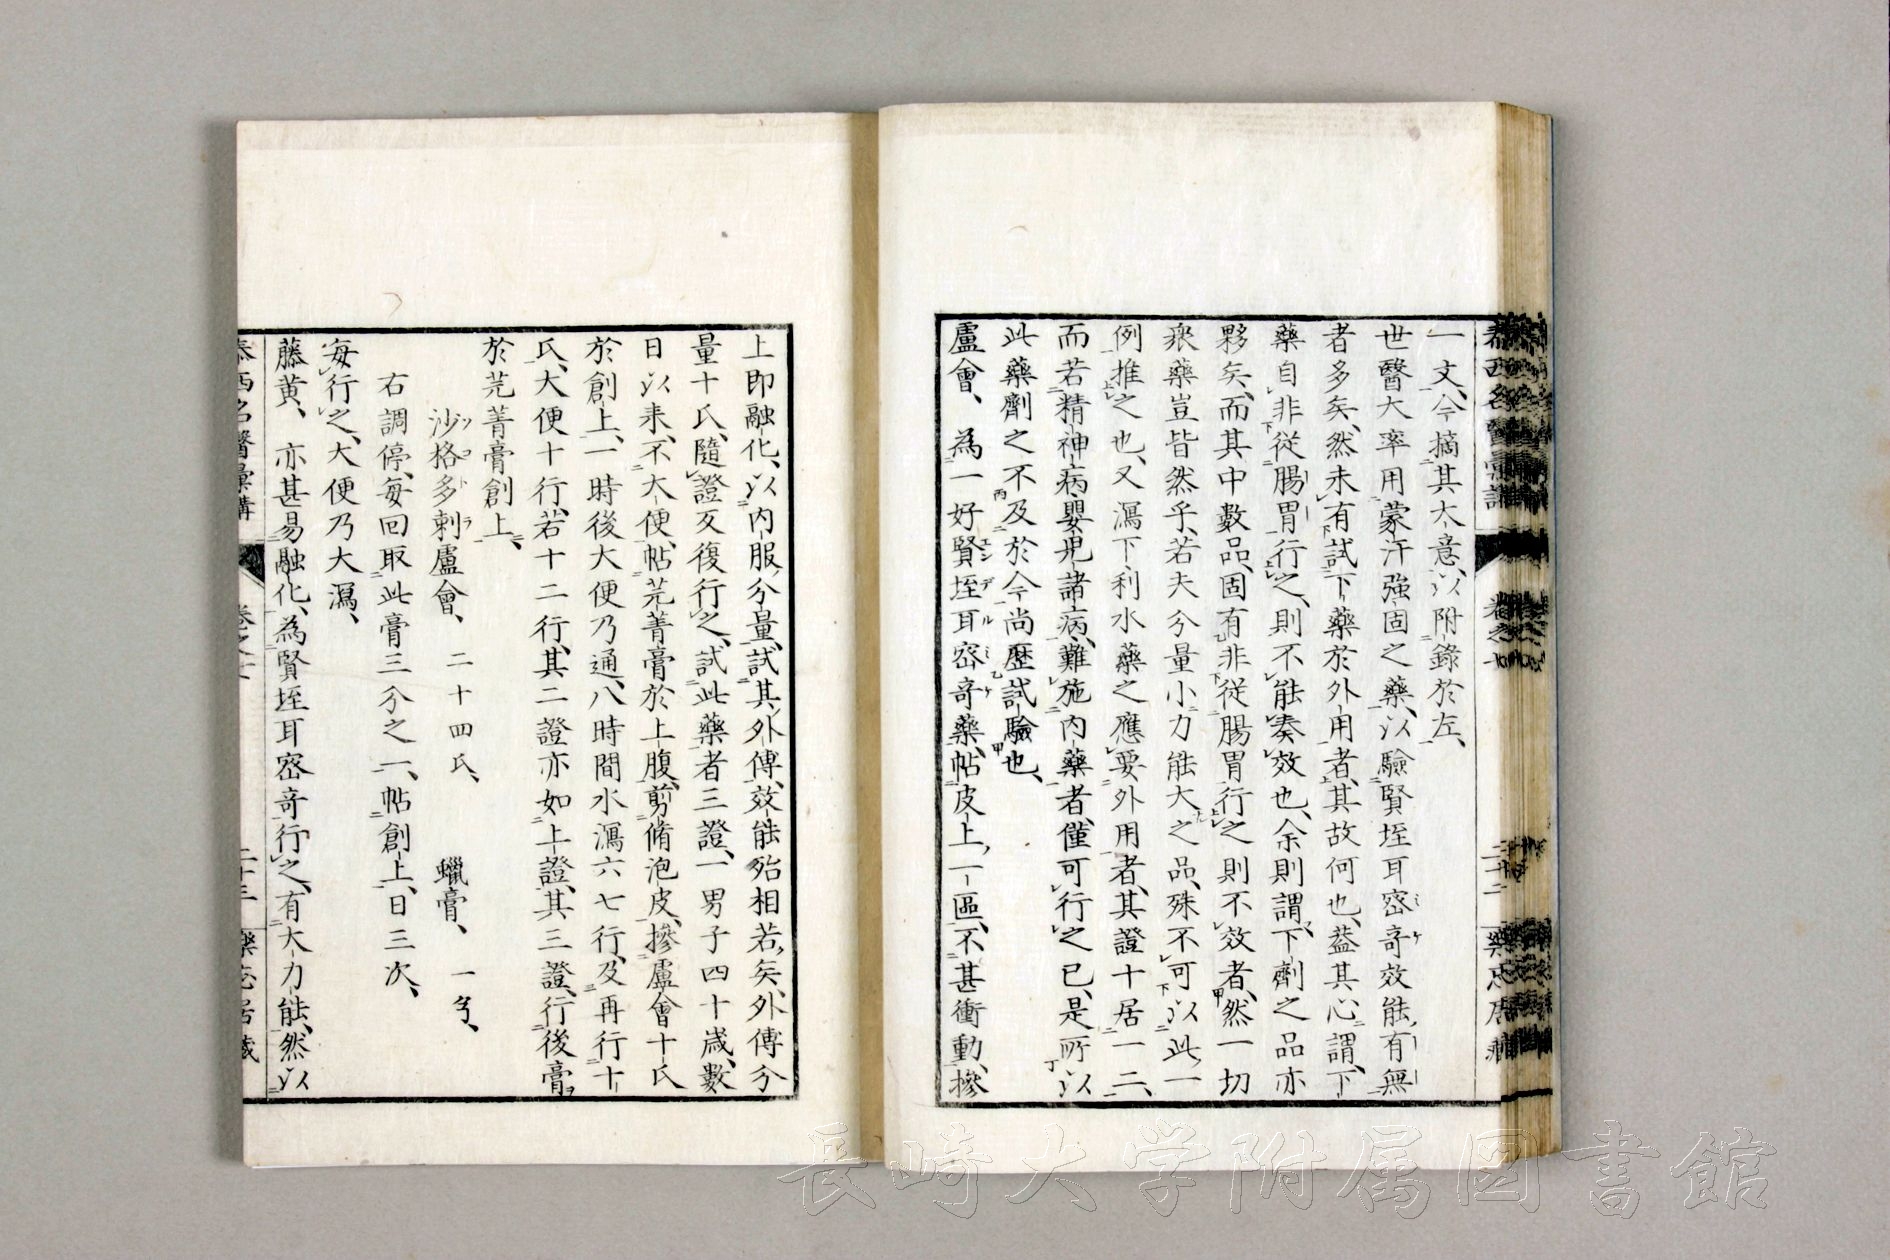 一文、今摘其大意、以附錄於左、
世醫大率用蒙汗強固之藥、以驗賢垤耳宻竒效能有無
者多矣、然未有試下藥於外用者、其故何也、葢其心謂下
藥自非從腸胃行之、則不能奏效也、余則謂、下劑之品亦
夥矣、而其中數品、固有非從腸胃行之則不效者、然一切
衆藥豈皆然乎、若夫分量小力能大之品、殊不可以此一
例推之也、又瀉下、利水藥之應要外用者、其證十居一二、
而若精神病、嬰兒諸病、難施內藥者、僅可行之已、是所以
此藥劑之不及於今尚歷試驗也、
盧會、為一好賢垤耳宻竒藥、帖皮上、一區、不甚衝動、摻
上即融化、以內服分量、試其外傅、效能殆相若矣、外傅分
量十氏、隨證反復行之、試此藥者三證、一男子四十歲、數
日以来、不大便、帖芫菁膏於上腹、剪脩泡皮、摻盧會十氏
於創上、一時後大便乃通、八時間水瀉六七行、及再行十
氏、大便十行、若十二行、其二證亦如上證、其三證、行後膏
於芫菁膏創上、
沙格多剌盧會、二十四氏、蠟膏、一ㄢ、
右調停、每回取此膏三分之一、帖創上、日三次、
每行之、大便乃大瀉、
藤黄、亦甚易融化、為賢垤耳宻竒行之、有大力能、然以
泰西名醫彙講 卷之 二十三 樂志居藏
長崎大学附属図書館